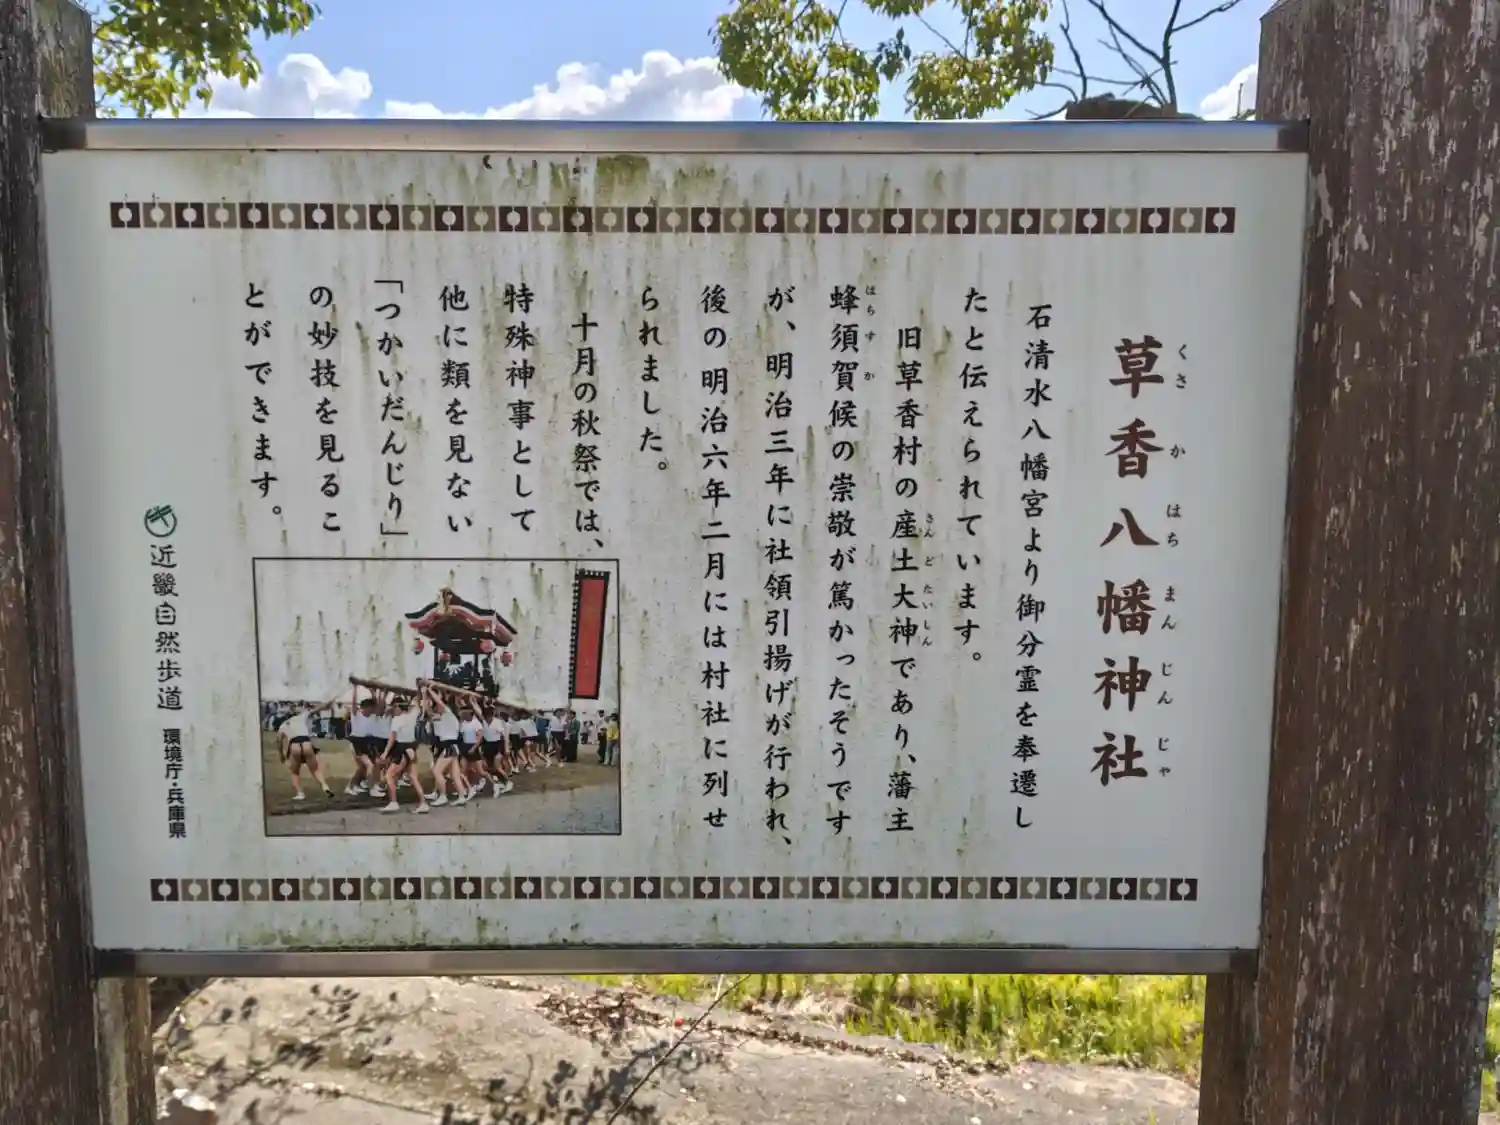 草香八幡神社
くさかはちまんじんじゃ
石清水八幡宮より御分霊を奉遷し
たと伝えられています。
旧草香村の産土大神であり、藩主
さんどたいしん
蜂須賀候の崇敬が篤かったそうです
はちすか
が、明治三年に社領引揚げが行われ、
後の明治六年二月には村社に列せ
られました。
十月の秋祭では、
特殊神事として
他に類を見ない
「つかいだんじり」
の妙技を見るこ
とができます。
近畿自然歩道 環境庁・兵庫県